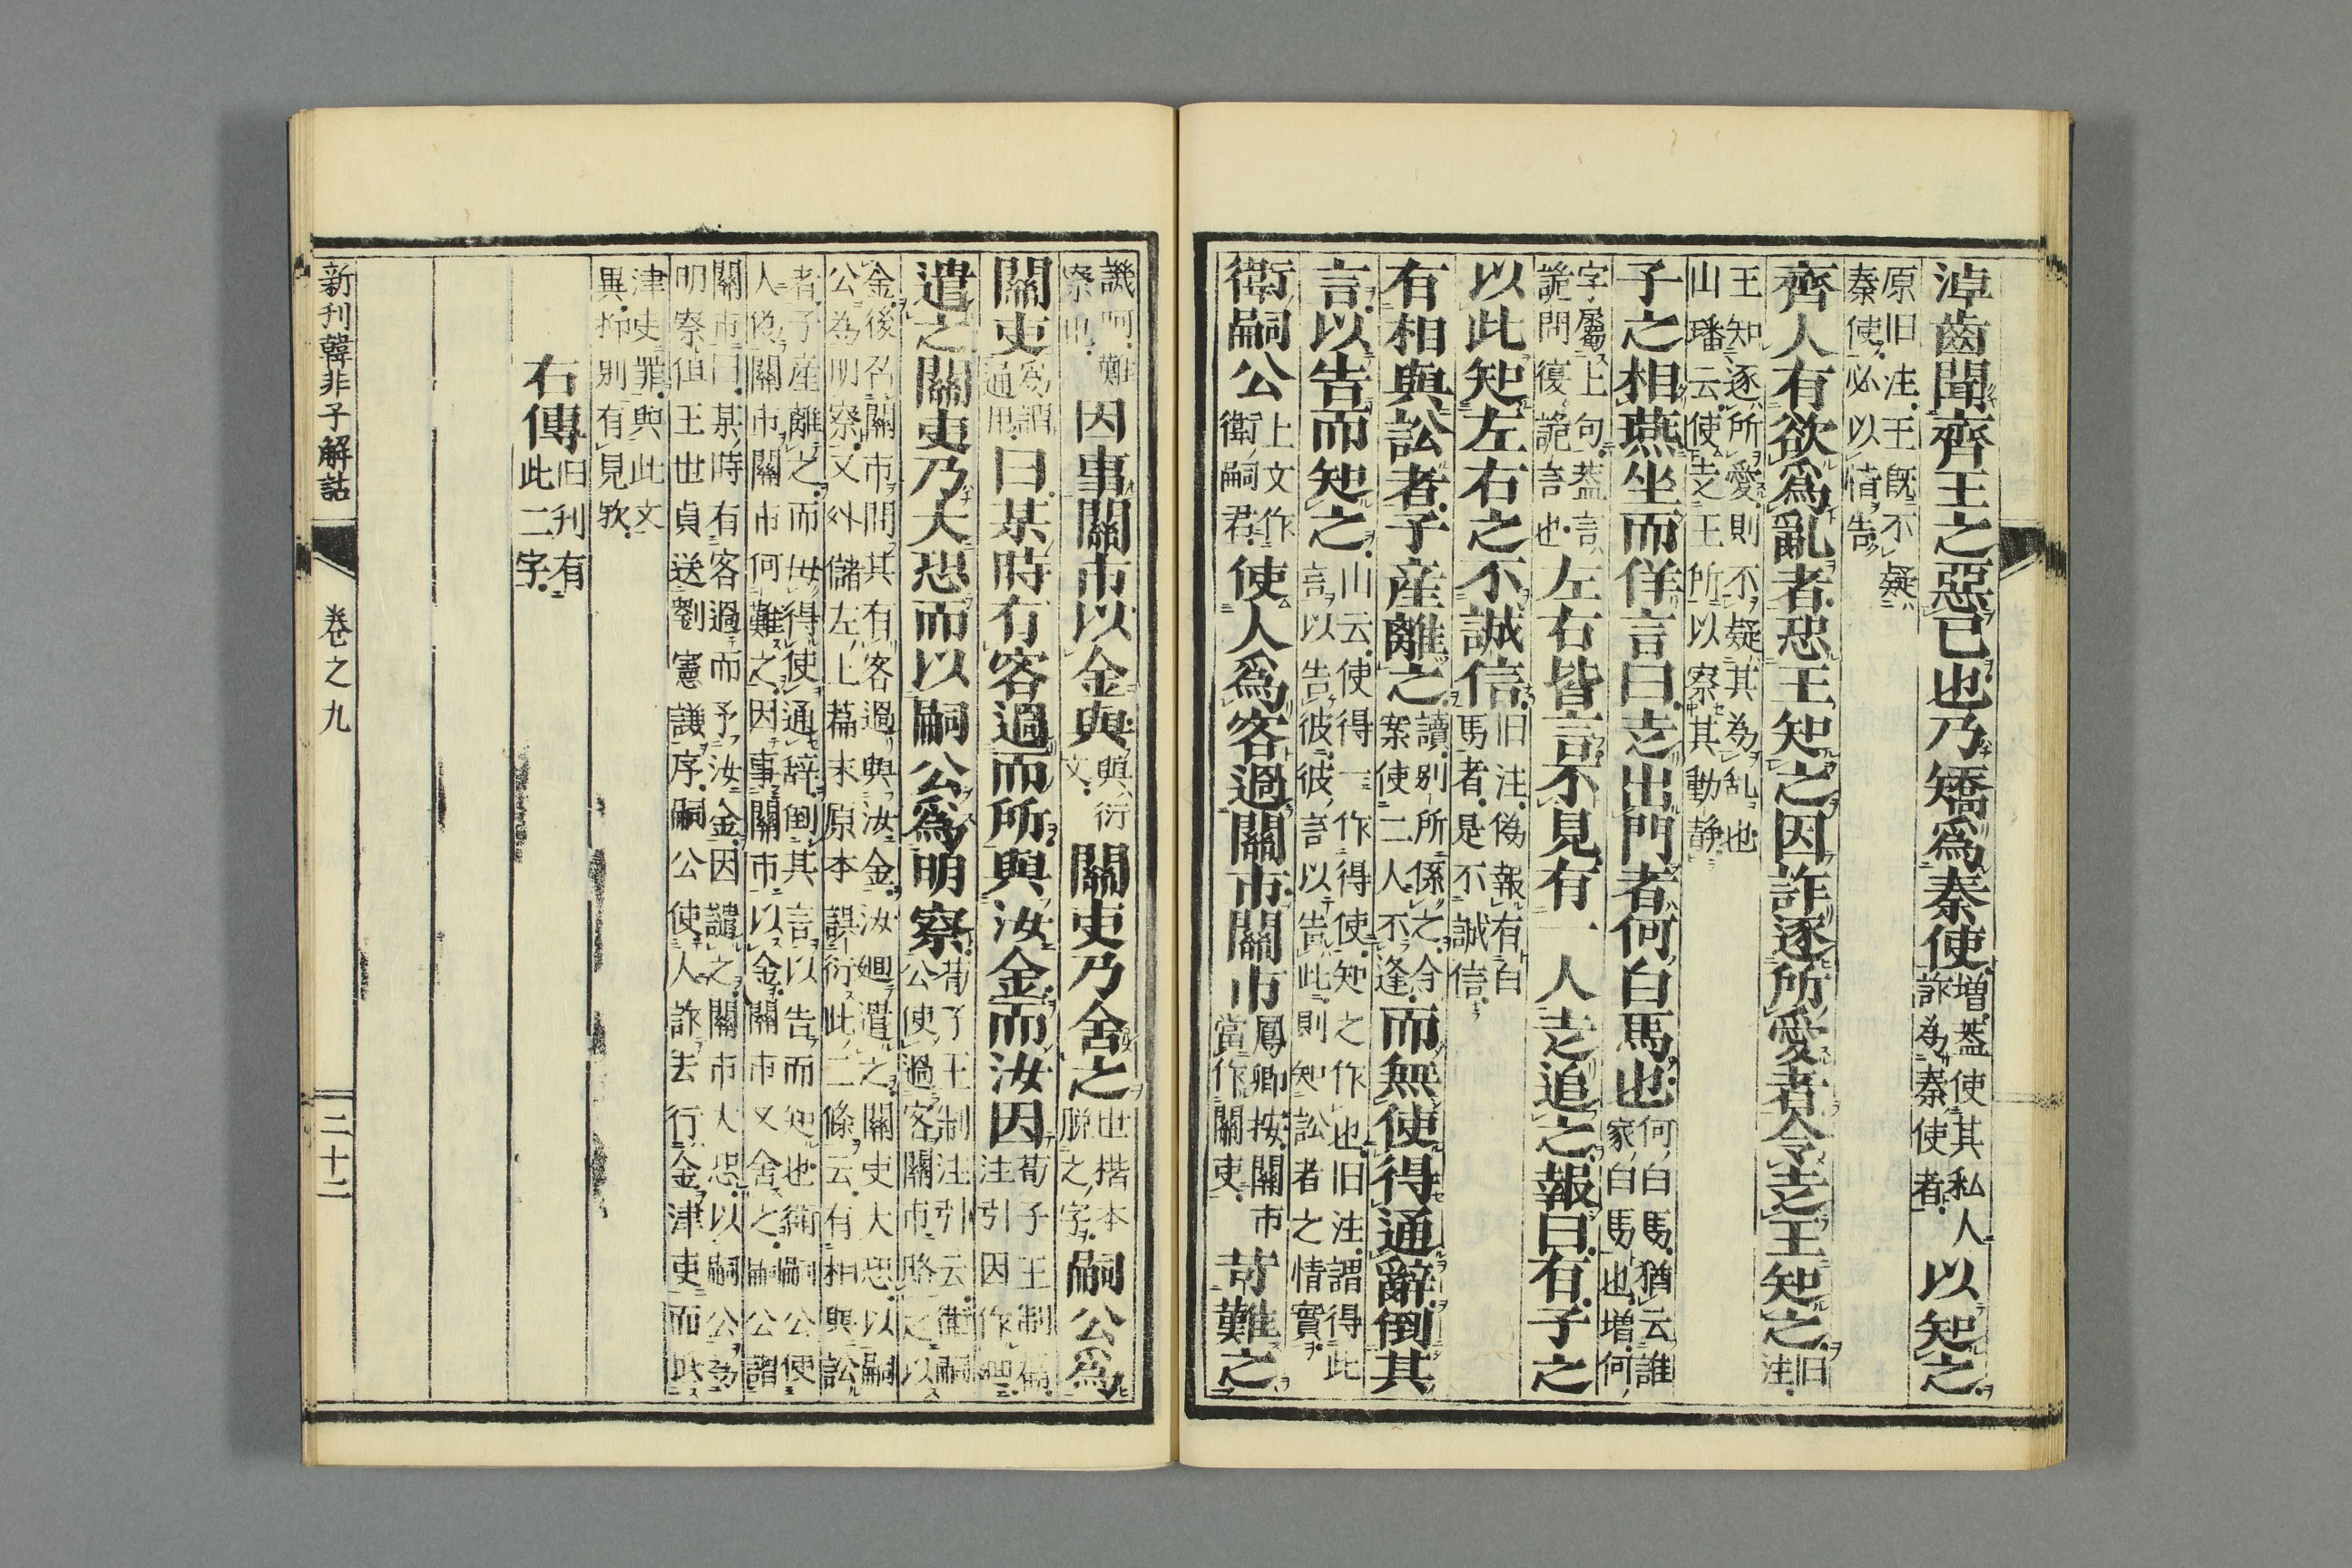 淖齒聞齊王之惡己也乃矯爲秦使増蓋使其私人詐為秦使者以知之
原旧注王既不疑秦使必以情告
齊人有欲爲亂者恐王知之因詐逐所愛者令走王知之旧注
王知逐所愛則不疑其為乱也山璠云使走王所以察其動静
子之相燕坐而佯言曰走出門者何白馬也何白馬猶云誰家白馬也増何
字屬上句蓋言詭問復詭言也左右皆言不見有一人走追之報曰有子之
以此知左右之不誠信旧注偽報有白馬者是不誠信
有相與訟者子産離之讀別所係之令案使二人不逢而無使得通辭倒其
言以告而知之山云使得一作得使知之作也旧注謂得此言以告彼彼言以告此則知訟者之情實
衛嗣公上文作衛嗣君使人爲客過關市關市鳳卿按關市當作關吏苛難之
譏呵難察也因事關市以金與與衍文關吏乃舍之世楷本脱之字嗣公爲
關吏爲謂通用曰某時有客過而所與汝金而汝因荀子王制篇注引因作迴
遣之關吏乃大恐而以嗣公爲明察荀子王制注引云衛嗣公使過客關市賂之以
金後召關市問其有客過與汝金汝迴遣之關吏大恐以嗣公為明察又外儲左上篇末原本誤衍此二條云有相與訟
者子産離之而毋得使通辭倒其言以告而知也衛嗣公使人偽關市關市何難之因事關市以金關市又舍之嗣公謂
關市曰某時有客過而予汝金因譴之關市大恐以嗣公為明察但王世貞送劉憲謙序嗣公使人詐去行金津吏而
津吏罪與此文異抑別有見欤
右傳旧刊有此二字
新刊韓非子解詁
卷之九
二十二